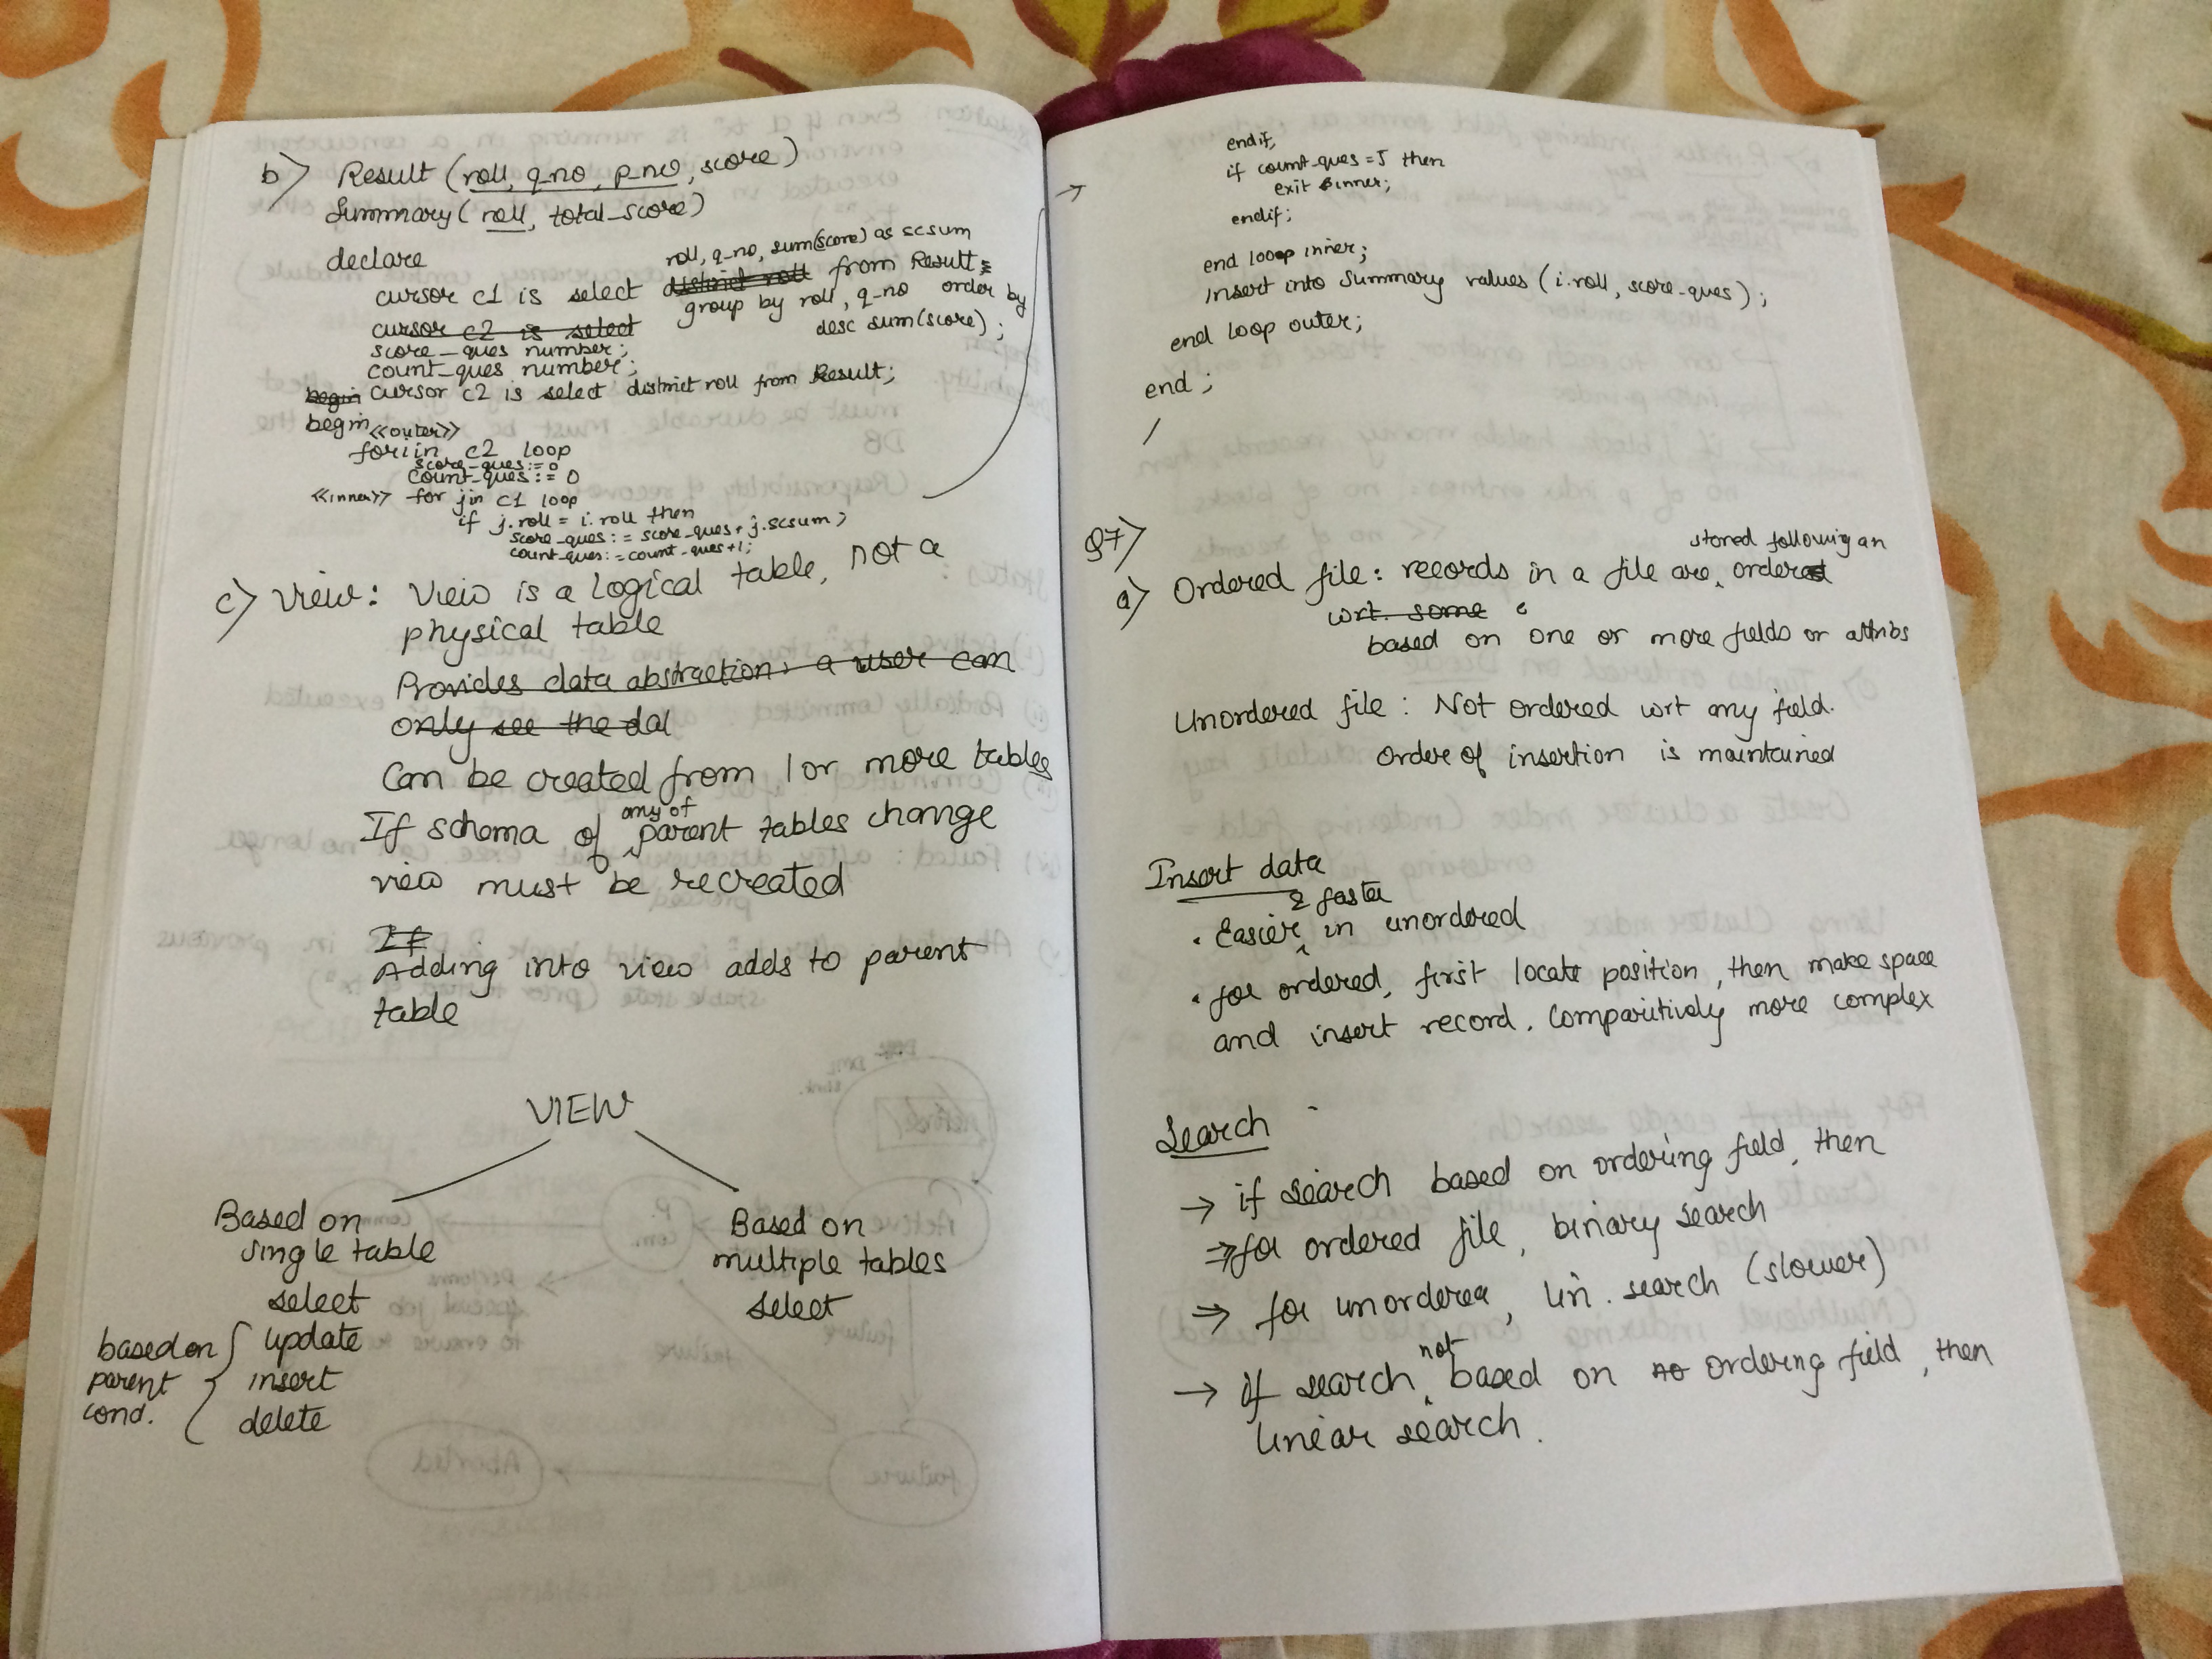 b) Result (roll, q-no, p-no, score)
Summary (roll, total_score)
declare
roll, q-no, sum(score) as scsum
cursor c1 is select distinct roll from Result
group by roll, q-no order by
cursor c2 is select
desc sum(score);
score_ques number;
count_ques number;
begin cursor c2 is select distinct roll from Result;
begin
<<outer>>
for i in c2 loop
score_ques := 0
count_ques := 0
<<inner>> for j in c1 loop
if j.roll = i.roll then
score_ques := score_ques + j.scsum;
count_ques := count_ques+1;
c) View: View is a logical table, not a
physical table
Provides data abstraction. a user can
only see the dat
Can be created from 1 or more tables
any of
If schema of parent tables change
view must be recreated
If
Adding into view adds to parent
table
VIEW
Based on
single table
select
based on
parent
cond.
update
insert
delete
Based on
multiple tables
select
→ endif;
if count_ques = 5 then
exit inner;
endif;
end looop inner;
insert into Summary values (i.roll, score_ques);
end loop outer;
end;
/
Q7)
stored following an
a) Ordered file: records in a file are order
wrt. some
based on one or more fields or attribs
Unordered file: Not ordered wrt any field.
Order of insertion is maintained
Insert data
& faster
. Easier in unordered
. for ordered, first locate position, then make space
and insert record. Comparitively more complex
Search
→ if search based on ordering field, then
⇒ for ordered file, binary search
⇒ for unordered, lin. search (slower)
not
→ if search based on no ordering field, then
linear search.